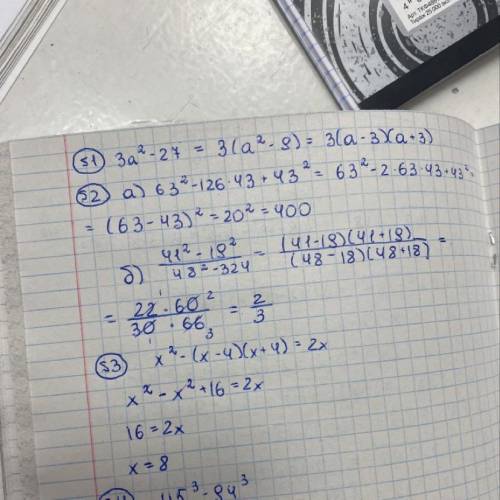 №1 3a² - 27 = 3(a² - 9) = 3(a - 3)(a + 3)
№2 а) 63² - 126 · 43 + 43² = 63² - 2 · 63 · 43 + 43² =
= (63 - 43)² = 20² = 400
б) (41² - 19²)/(48² - 324) = ((41 - 19)(41 + 19))/((48 - 18)(48 + 18)) =
= (22 · 60)/(30 · 66) = 2/3
№3 x² - (x - 4)(x + 4) = 2x
x² - x² + 16 = 2x
16 = 2x
x = 8